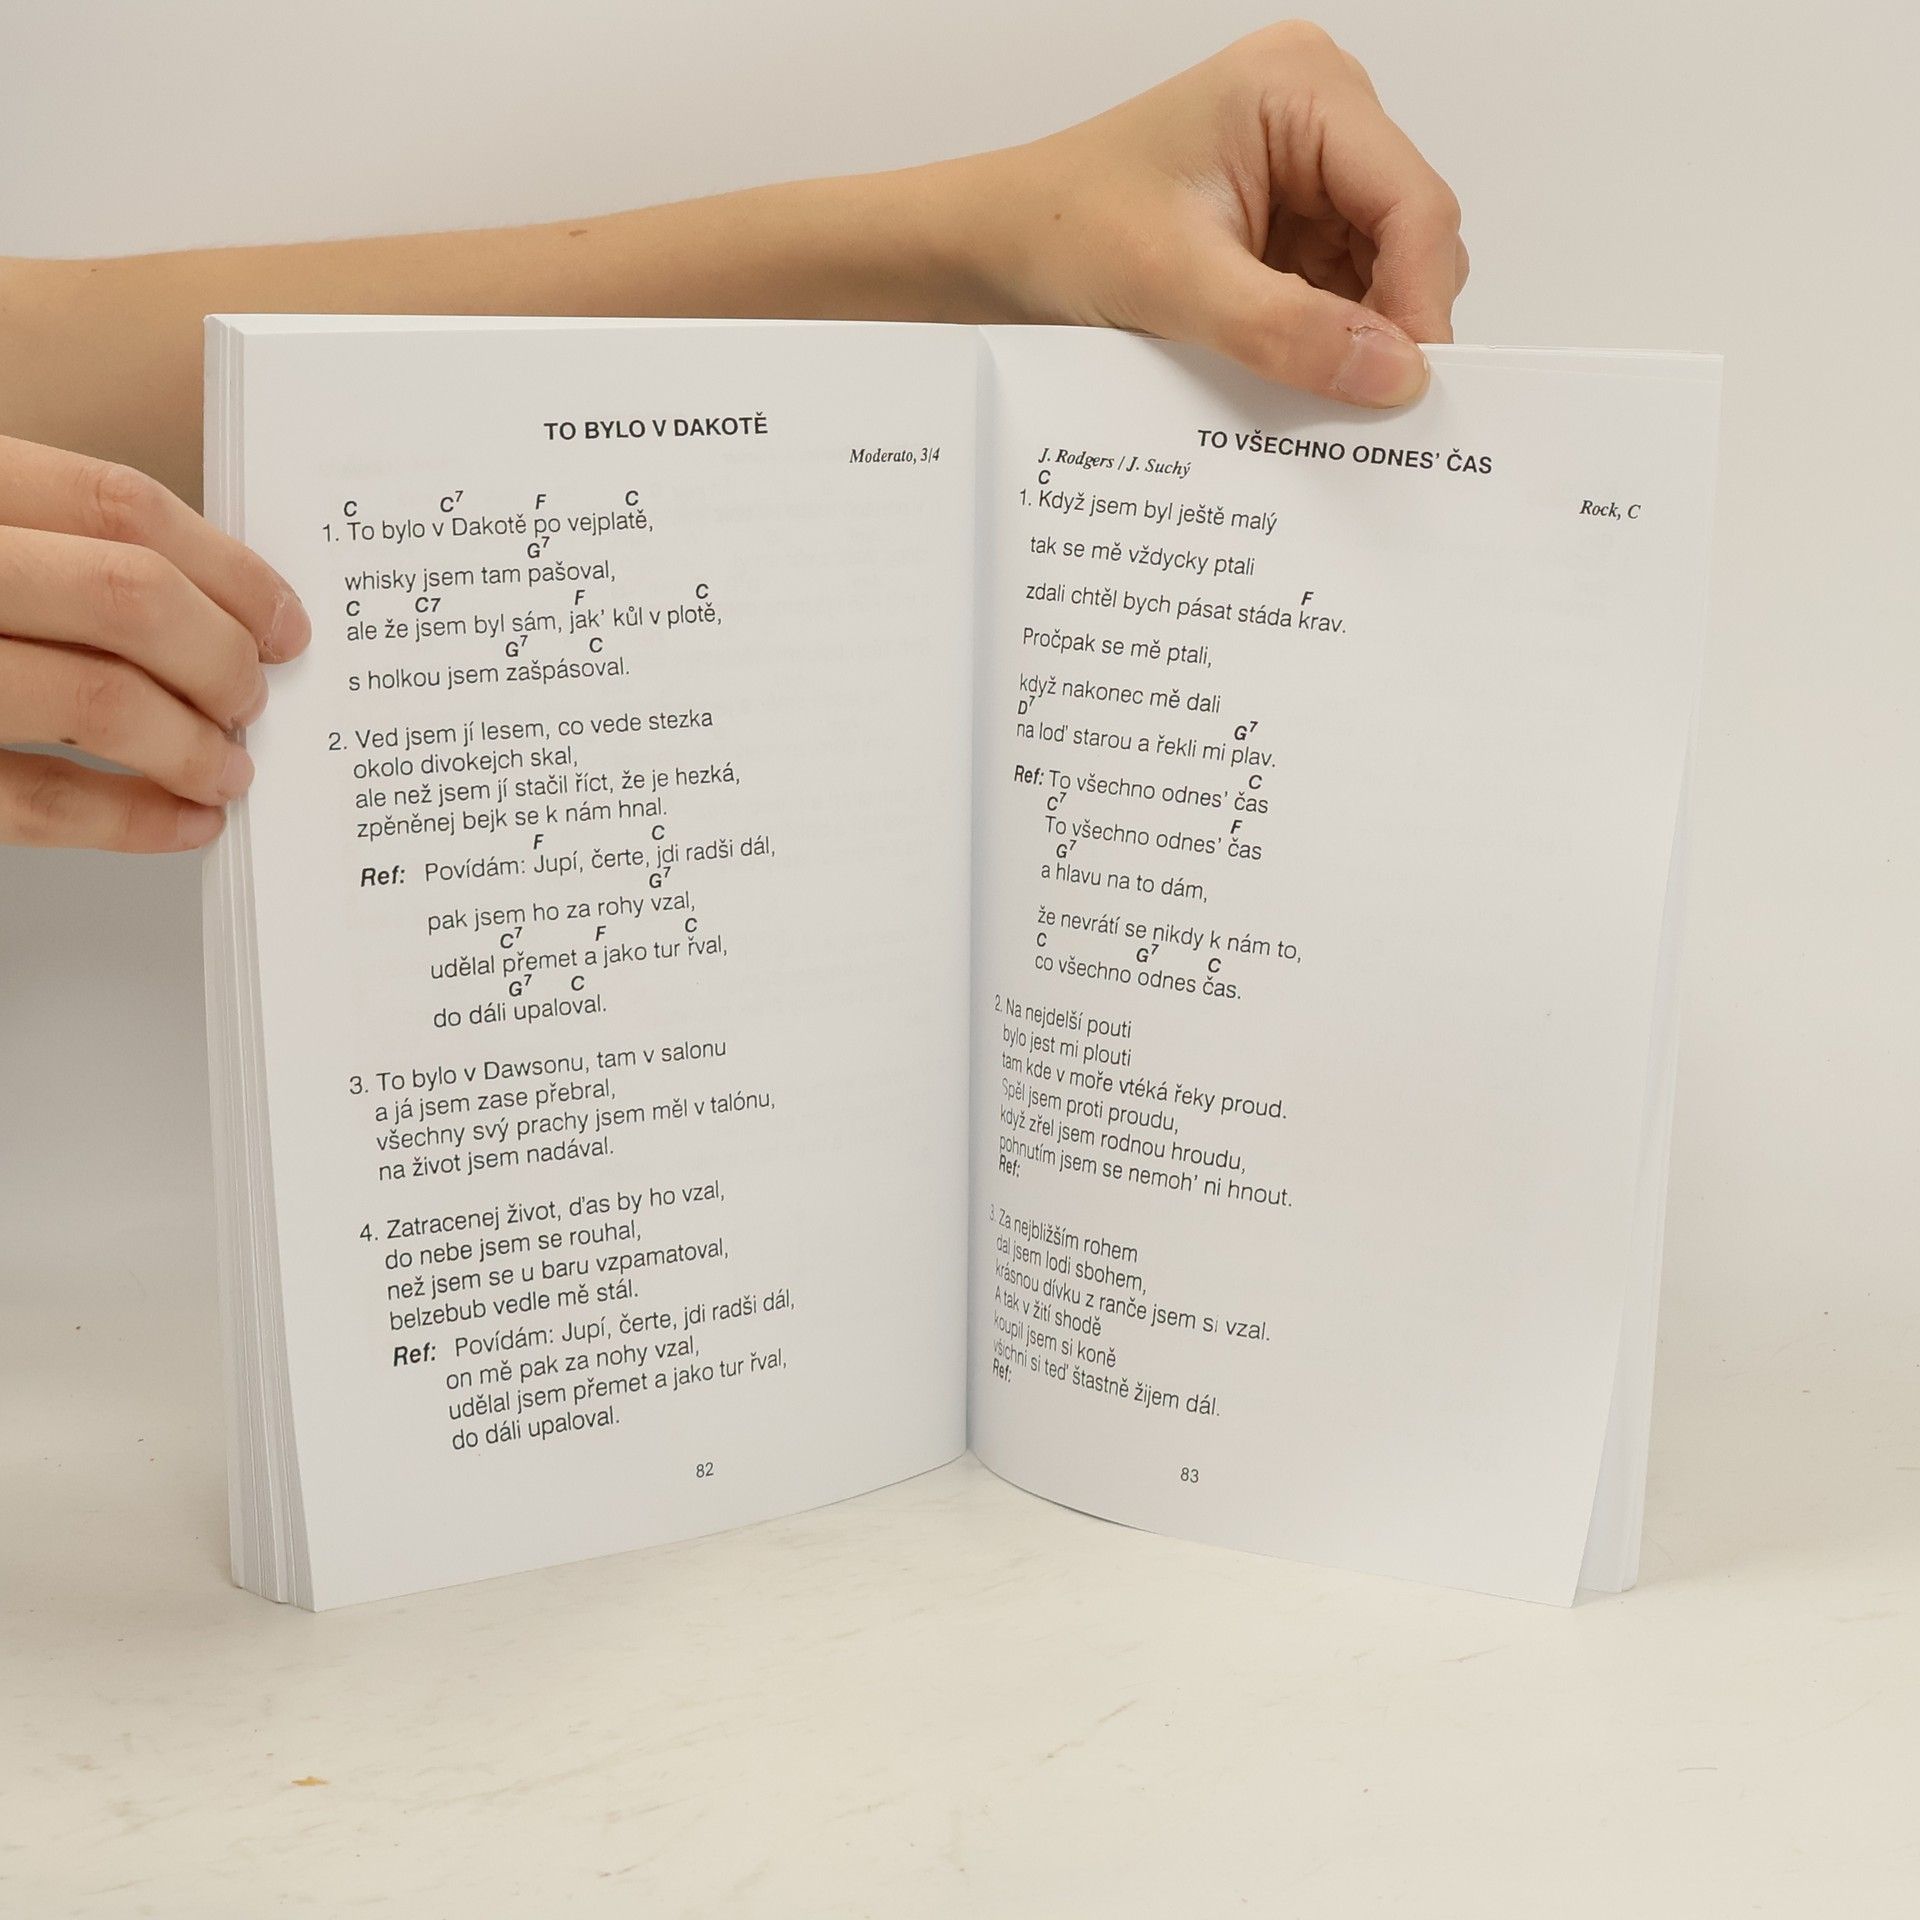 TO BYLO V DAKOTĚ
Moderato, 3/4
C C7 F C
1. To bylo v Dakotě po vejplatě,
G7
whisky jsem tam pašoval,
C C7 F C
ale že jsem byl sám, jak' kůl v plotě,
G7 C
s holkou jsem zašpásoval.
2. Ved jsem jí lesem, co vede stezka
okolo divokejch skal,
ale než jsem jí stačil říct, že je hezká,
zpěněnej bejk se k nám hnal.
F C
Ref: Povídám: Jupí, čerte, jdi radši dál,
G7
pak jsem ho za rohy vzal,
C7 F C
udělal přemet a jako tur řval,
G7 C
do dáli upaloval.
3. To bylo v Dawsonu, tam v salonu
a já jsem zase přebral,
všechny svý prachy jsem měl v talónu,
na život jsem nadával.
4. Zatracenej život, ďas by ho vzal,
do nebe jsem se rouhal,
než jsem se u baru vzpamatoval,
belzebub vedle mě stál.
Ref: Povídám: Jupí, čerte, jdi radši dál,
on mě pak za nohy vzal,
udělal jsem přemet a jako tur řval,
do dáli upaloval.
82
TO VŠECHNO ODNES' ČAS
J. Rodgers / J. Suchý
Rock, C
C
1. Když jsem byl ještě malý
tak se mě vždycky ptali
F
zdali chtěl bych pásat stáda krav.
Pročpak se mě ptali,
když nakonec mě dali
D7 G7
na loď starou a řekli mi plav.
C
Ref: To všechno odnes' čas
C7 F
To všechno odnes' čas
G7
a hlavu na to dám,
že nevrátí se nikdy k nám to,
C G7 C
co všechno odnes čas.
2. Na nejdelší pouti
bylo jest mi plouti
tam kde v moře vtéká řeky proud.
Spěl jsem proti proudu,
když zřel jsem rodnou hroudu,
pohnutím jsem se nemoh' ni hnout.
Ref:
3. Za nejbližším rohem
dal jsem lodi sbohem,
krásnou dívku z ranče jsem si vzal.
A tak v žití shodě
koupil jsem si koně
všichni si teď štastně žijem dál.
Ref:
83